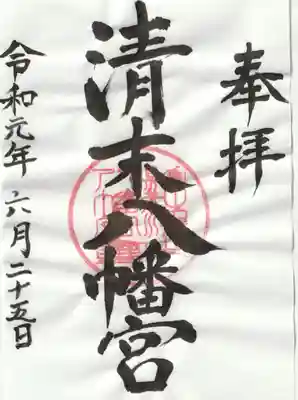 奉拝
清末八幡宮
令和元年 六月二十五日